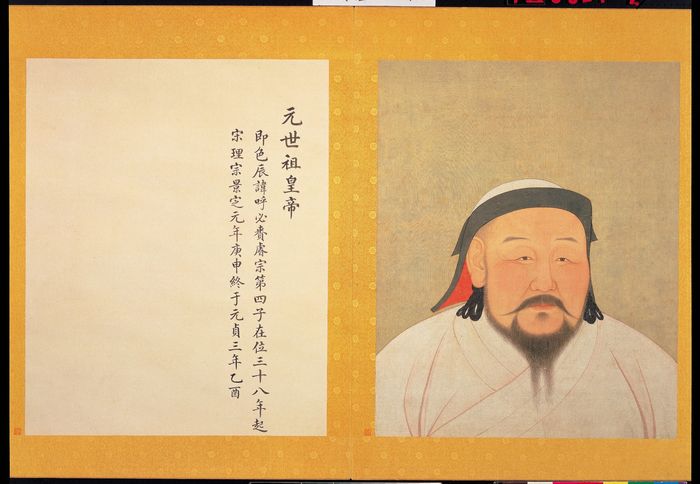 元世祖皇帝
即色辰諱呼必賚睿宗第四子在位三十八年起
宋理宗景定元年庚申終于元貞三年乙酉